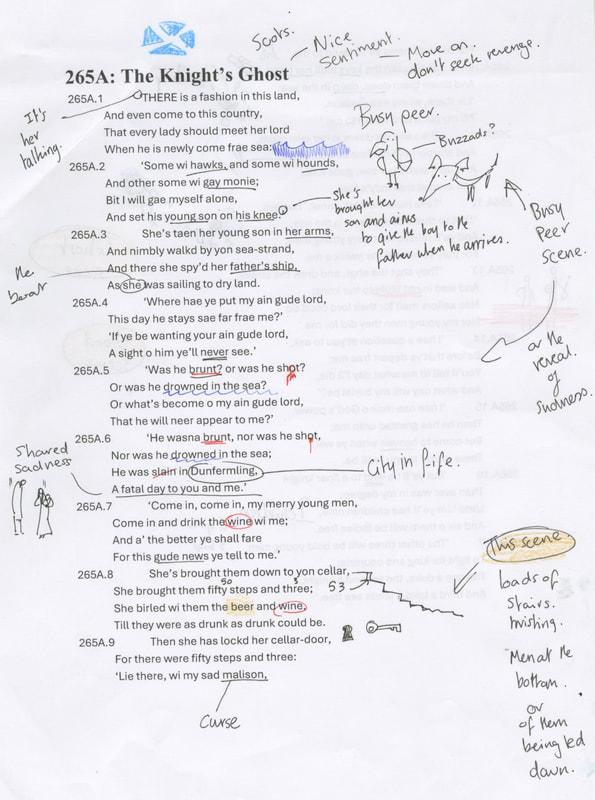 Scots.
Nice Sentiment. – Move on. don't seek revenge.
265A: The Knight's Ghost
It's her talking.
265A.1 THERE is a fashion in this land,
And even come to this country,
That every lady should meet her lord
When he is newly come frae sea:
Busy peer.
Buzzards?
265A.2 'Some wi hawks, and some wi hounds,
And other some wi gay monie;
Bit I will gae myself alone,
And set his young son on his knee.'
She's brought her son and aims to give the boy to the father when he arrives.
Busy Peer Scene.
265A.3 She's taen her young son in her arms,
And nimbly walkd by yon sea-strand,
And there she spy'd her father's ship,
As she was sailing to dry land.
The boat
265A.4 'Where hae ye put my ain gude lord,
This day he stays sae far frae me?'
'If ye be wanting your ain gude lord,
A sight o him ye'll never see.'
or the reveal of sadness.
265A.5 'Was he brunt? or was he shot?
Or was he drowned in the sea?
Or what's become o my ain gude lord,
That he will neer appear to me?'
265A.6 'He wasna brunt, nor was he shot,
Nor was he drowned in the sea;
He was slain in Dunfermling,
A fatal day to you and me.'
Shared Sadness
City in Fife.
265A.7 'Come in, come in, my merry young men,
Come in and drink the wine wi me;
And a' the better ye shall fare
For this gude news ye tell to me.'
265A.8 She's brought them down to yon cellar,
She brought them fifty steps and three;
50 3 53
She birled wi them the beer and wine,
Till they were as drunk as drunk could be.
265A.9 Then she has lockd her cellar-door,
For there were fifty steps and three:
'Lie there, wi my sad malison,
Curse
This scene
Loads of stairs. twisting.
Men at the bottom.
or of them being led down.